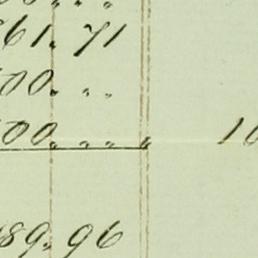 61. 71
00. „ „
00. „ „ „ 10
89. 96